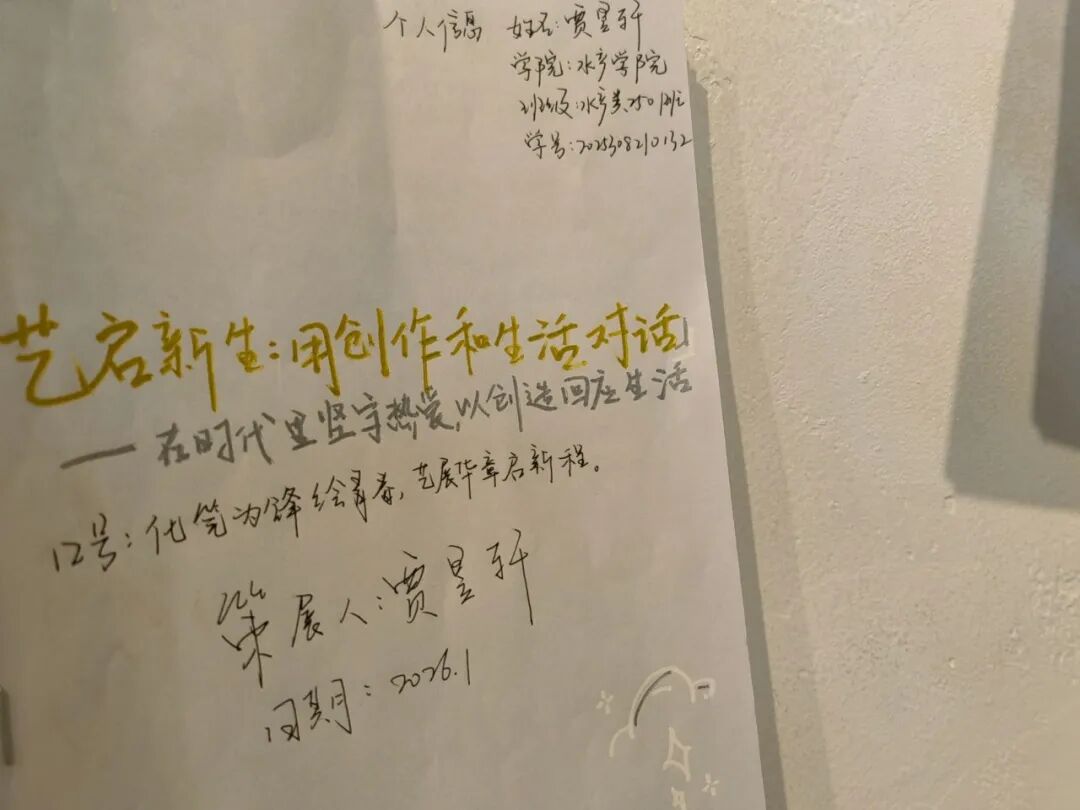 个人信息 姓名:贾昱轩
学院:水产学院
班级:水产类2501班
学号:2025308210132
艺启新生:用创作和生活对话
——在时代里坚守热爱,以创造回应生活
口号:化笔为锋绘青春,艺展华章启新程。
策展人:贾昱轩
日期:2026.1